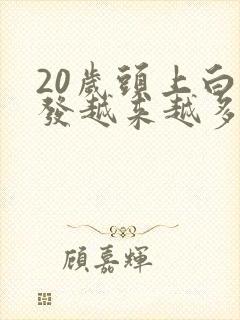 20歲頭上白
發越來越多
顧嘉輝